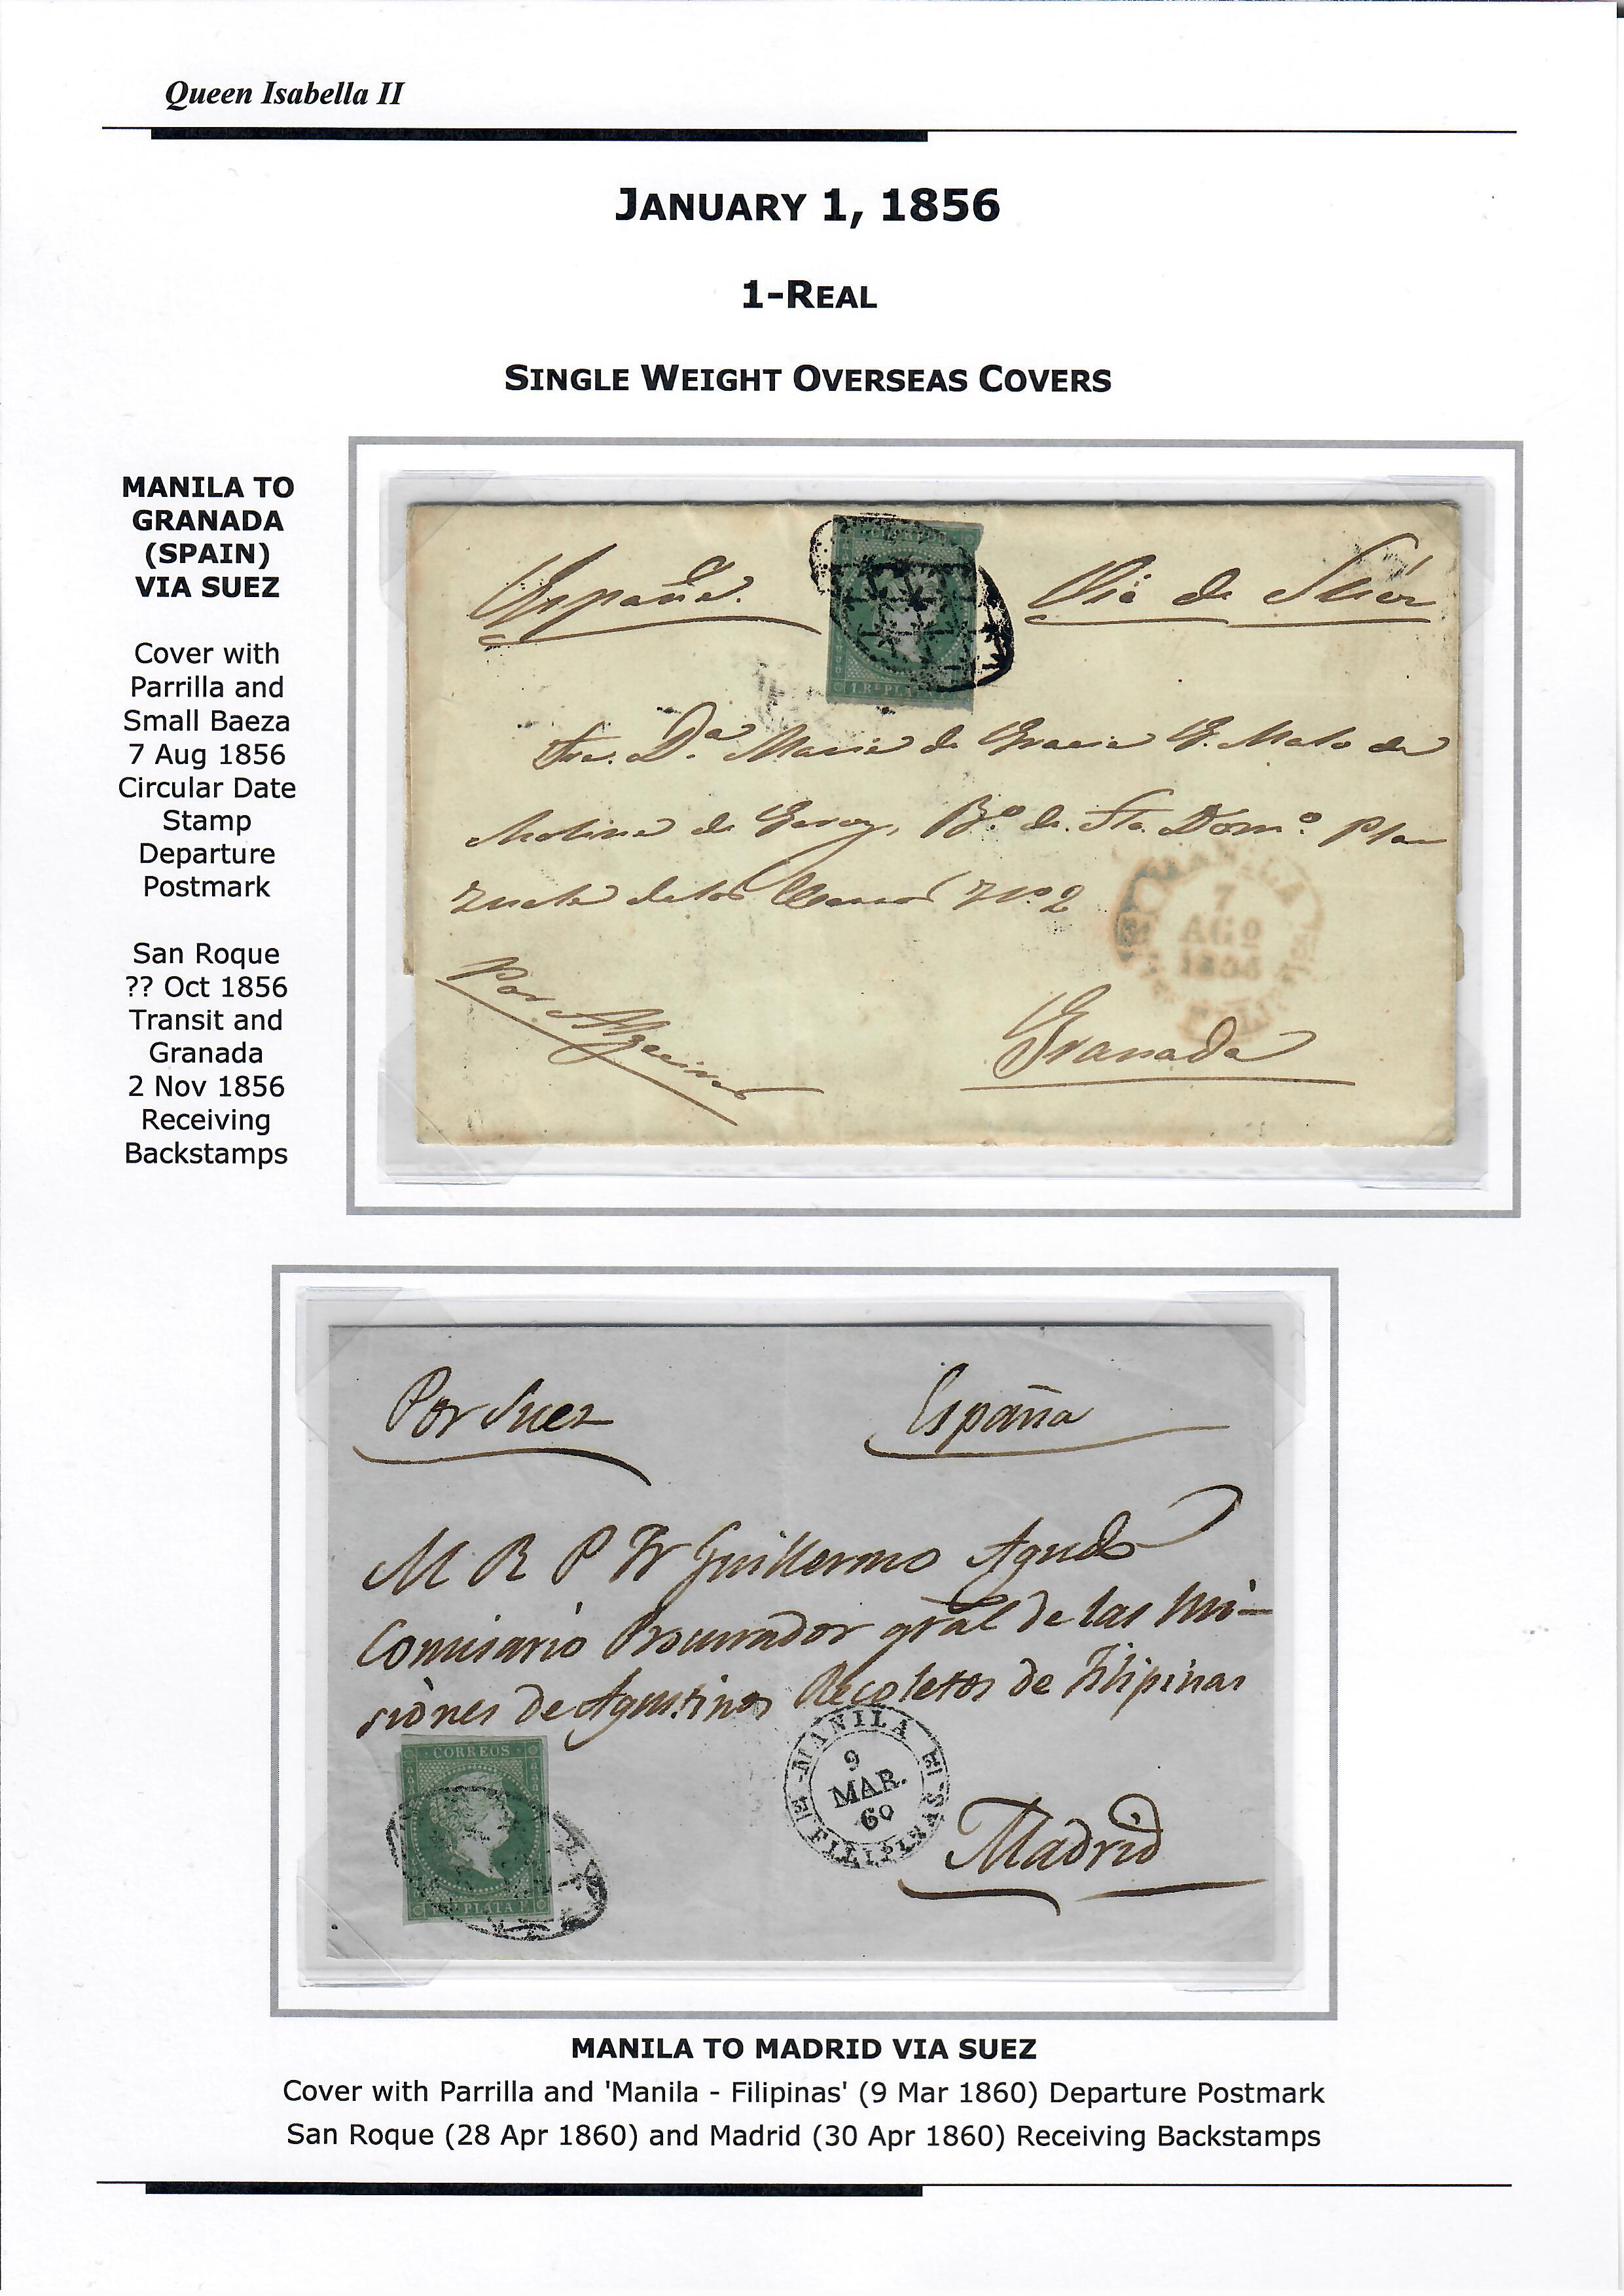 Queen Isabella II
JANUARY 1, 1856
1-REAL
SINGLE WEIGHT OVERSEAS COVERS
MANILA TO
GRANADA
(SPAIN)
VIA SUEZ
Cover with
Parrilla and
Small Baeza
7 Aug 1856
Circular Date
Stamp
Departure
Postmark
San Roque
?? Oct 1856
Transit and
Granada
2 Nov 1856
Receiving
Backstamps
España.
Via de Suez
1 Rl PL
Dª Maria de Gracia G. Malo de
Molina de Bº de Sto. Domº Pla
zuela de los nº 2
MANILA
7
AGO
1856
Por Algeciras
Granada
Por Suez
España
M R P Fr Guillermo Agudo
Comisario Procurador gral de las Mi-
siones de Agustinos Recoletos de Filipinas
CORREOS
PLATA F.
MANILA
9
MAR.
60
FILIPINAS
Madrid
MANILA TO MADRID VIA SUEZ
Cover with Parrilla and 'Manila - Filipinas' (9 Mar 1860) Departure Postmark
San Roque (28 Apr 1860) and Madrid (30 Apr 1860) Receiving Backstamps